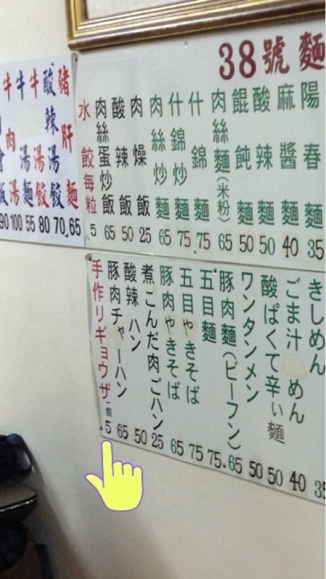 38號麵
陽春麵 35
麻醬麵 40
酸辣麵 50
餛飩麵 50
肉絲麵(米粉) 65
什錦麵 75
什錦炒麵 75
肉絲炒麵 65
肉燥飯 25
酸辣飯 50
肉絲蛋炒飯 65
水餃每粒 5
豬肝湯 65
酸辣湯餃 70
牛湯餃 80
牛湯麵 55
牛肉湯 100
90
きしめん 35
ごま汁めん 40
酸ぱくて辛い麵 50
ワンタンメン 50
豚肉麵(ビーフン) 65
五目麵 75
五目やきそば 75
豚肉やきそば 65
煮こんだ肉ごハン 25
酸辣ハン 50
豚肉チャーハン 65
手作リギョウザ一個 5